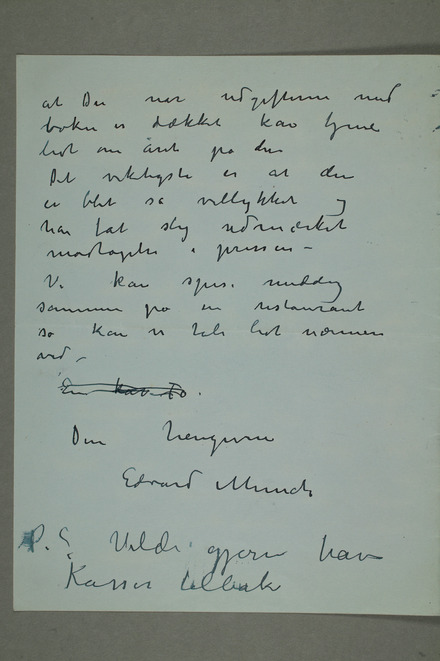 at De når udgifterne med
boken er dækket kan tjene
lidt om året på den
Det viktigste er at den
er blet så vellykket og
har fåt slig udmærket
modtagelse i pressen –
Vi kan spise middag
sammen på en restaurant
så kan vi tale lidt nærmere
ved –
Deres hengivne
Edvard Munch
P.S. Vilde gjerne have
Kassen tilbake